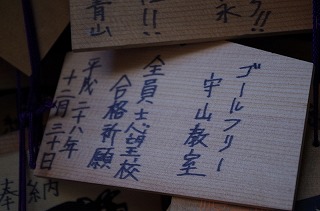 ゴールフリー
宇山教室
全員志望校
合格祈願
平成二十八年
十二月三十日
青山
永
奉納